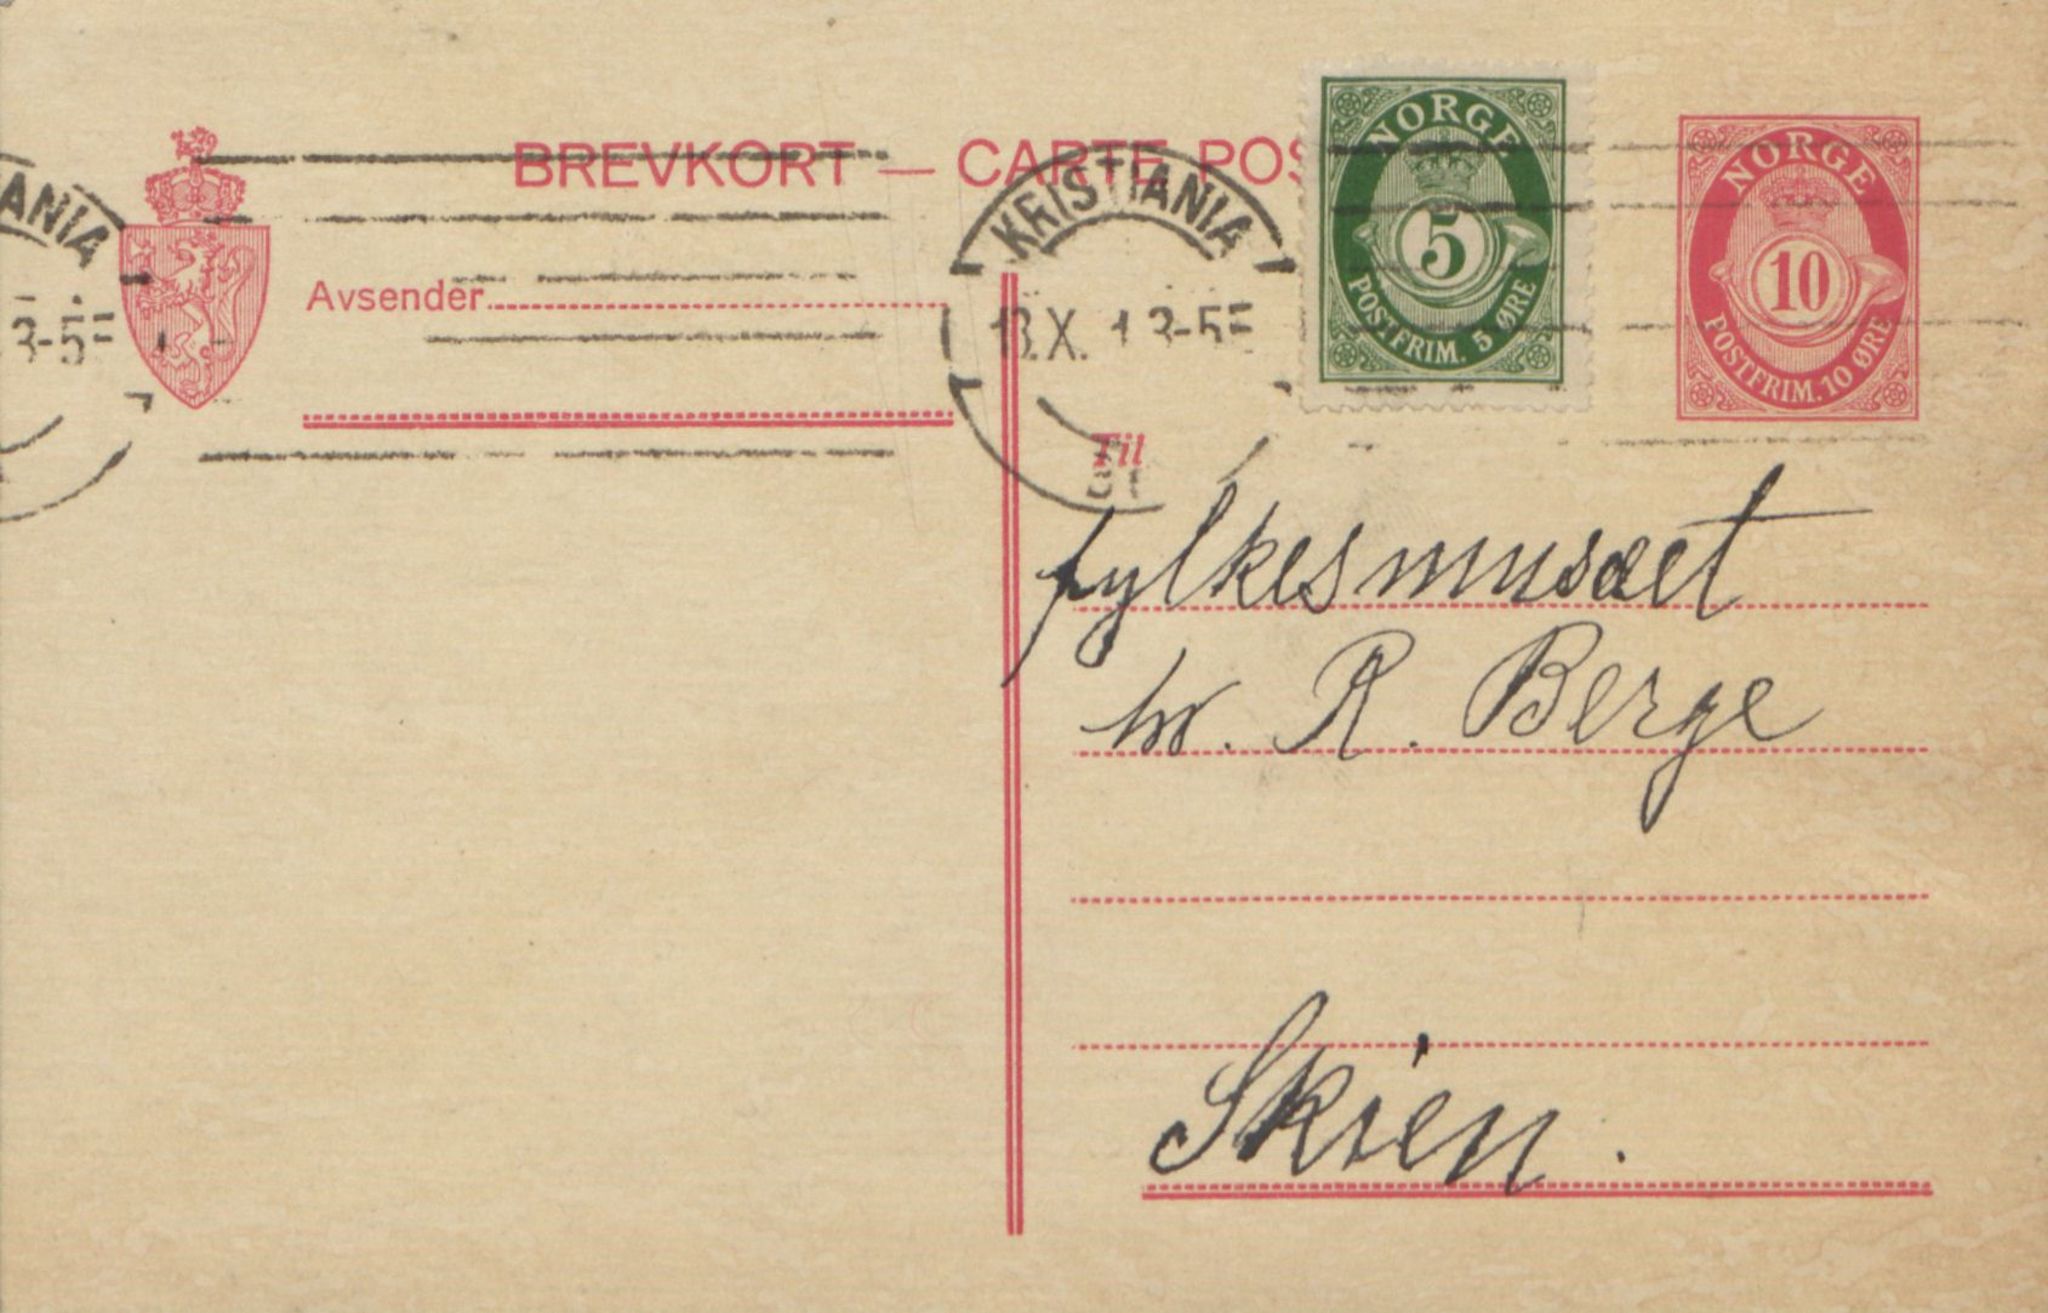 BREVKORT — CARTE POS
KRISTIANIA
ANIA
NORGE
5
POSTFRIM. 5 ØRE
NORGE
10
POSTFRIM. 10 ØRE
Avsender
3-5E
13.X. 1 3-5E
Til
fylkesmusæet
hr. R. Berge
Skien.